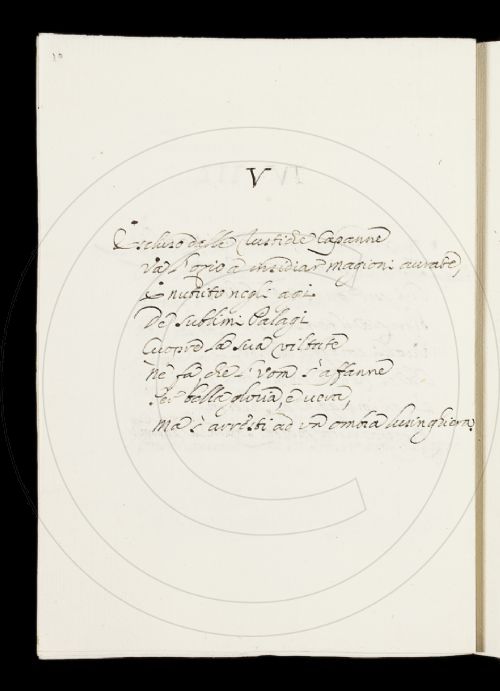 10
V
Escluso dalle rustiche Capanne
Va l'ozio à insidiar magioni aurate,
E nutrito negli agi
De' sublimi Palagi
Cuopre la sua viltate
Nè fà, che l'vom s'affanne
Per bella gloria, è vera,
Ma s'arresti ad vn ombra lusinghiera.